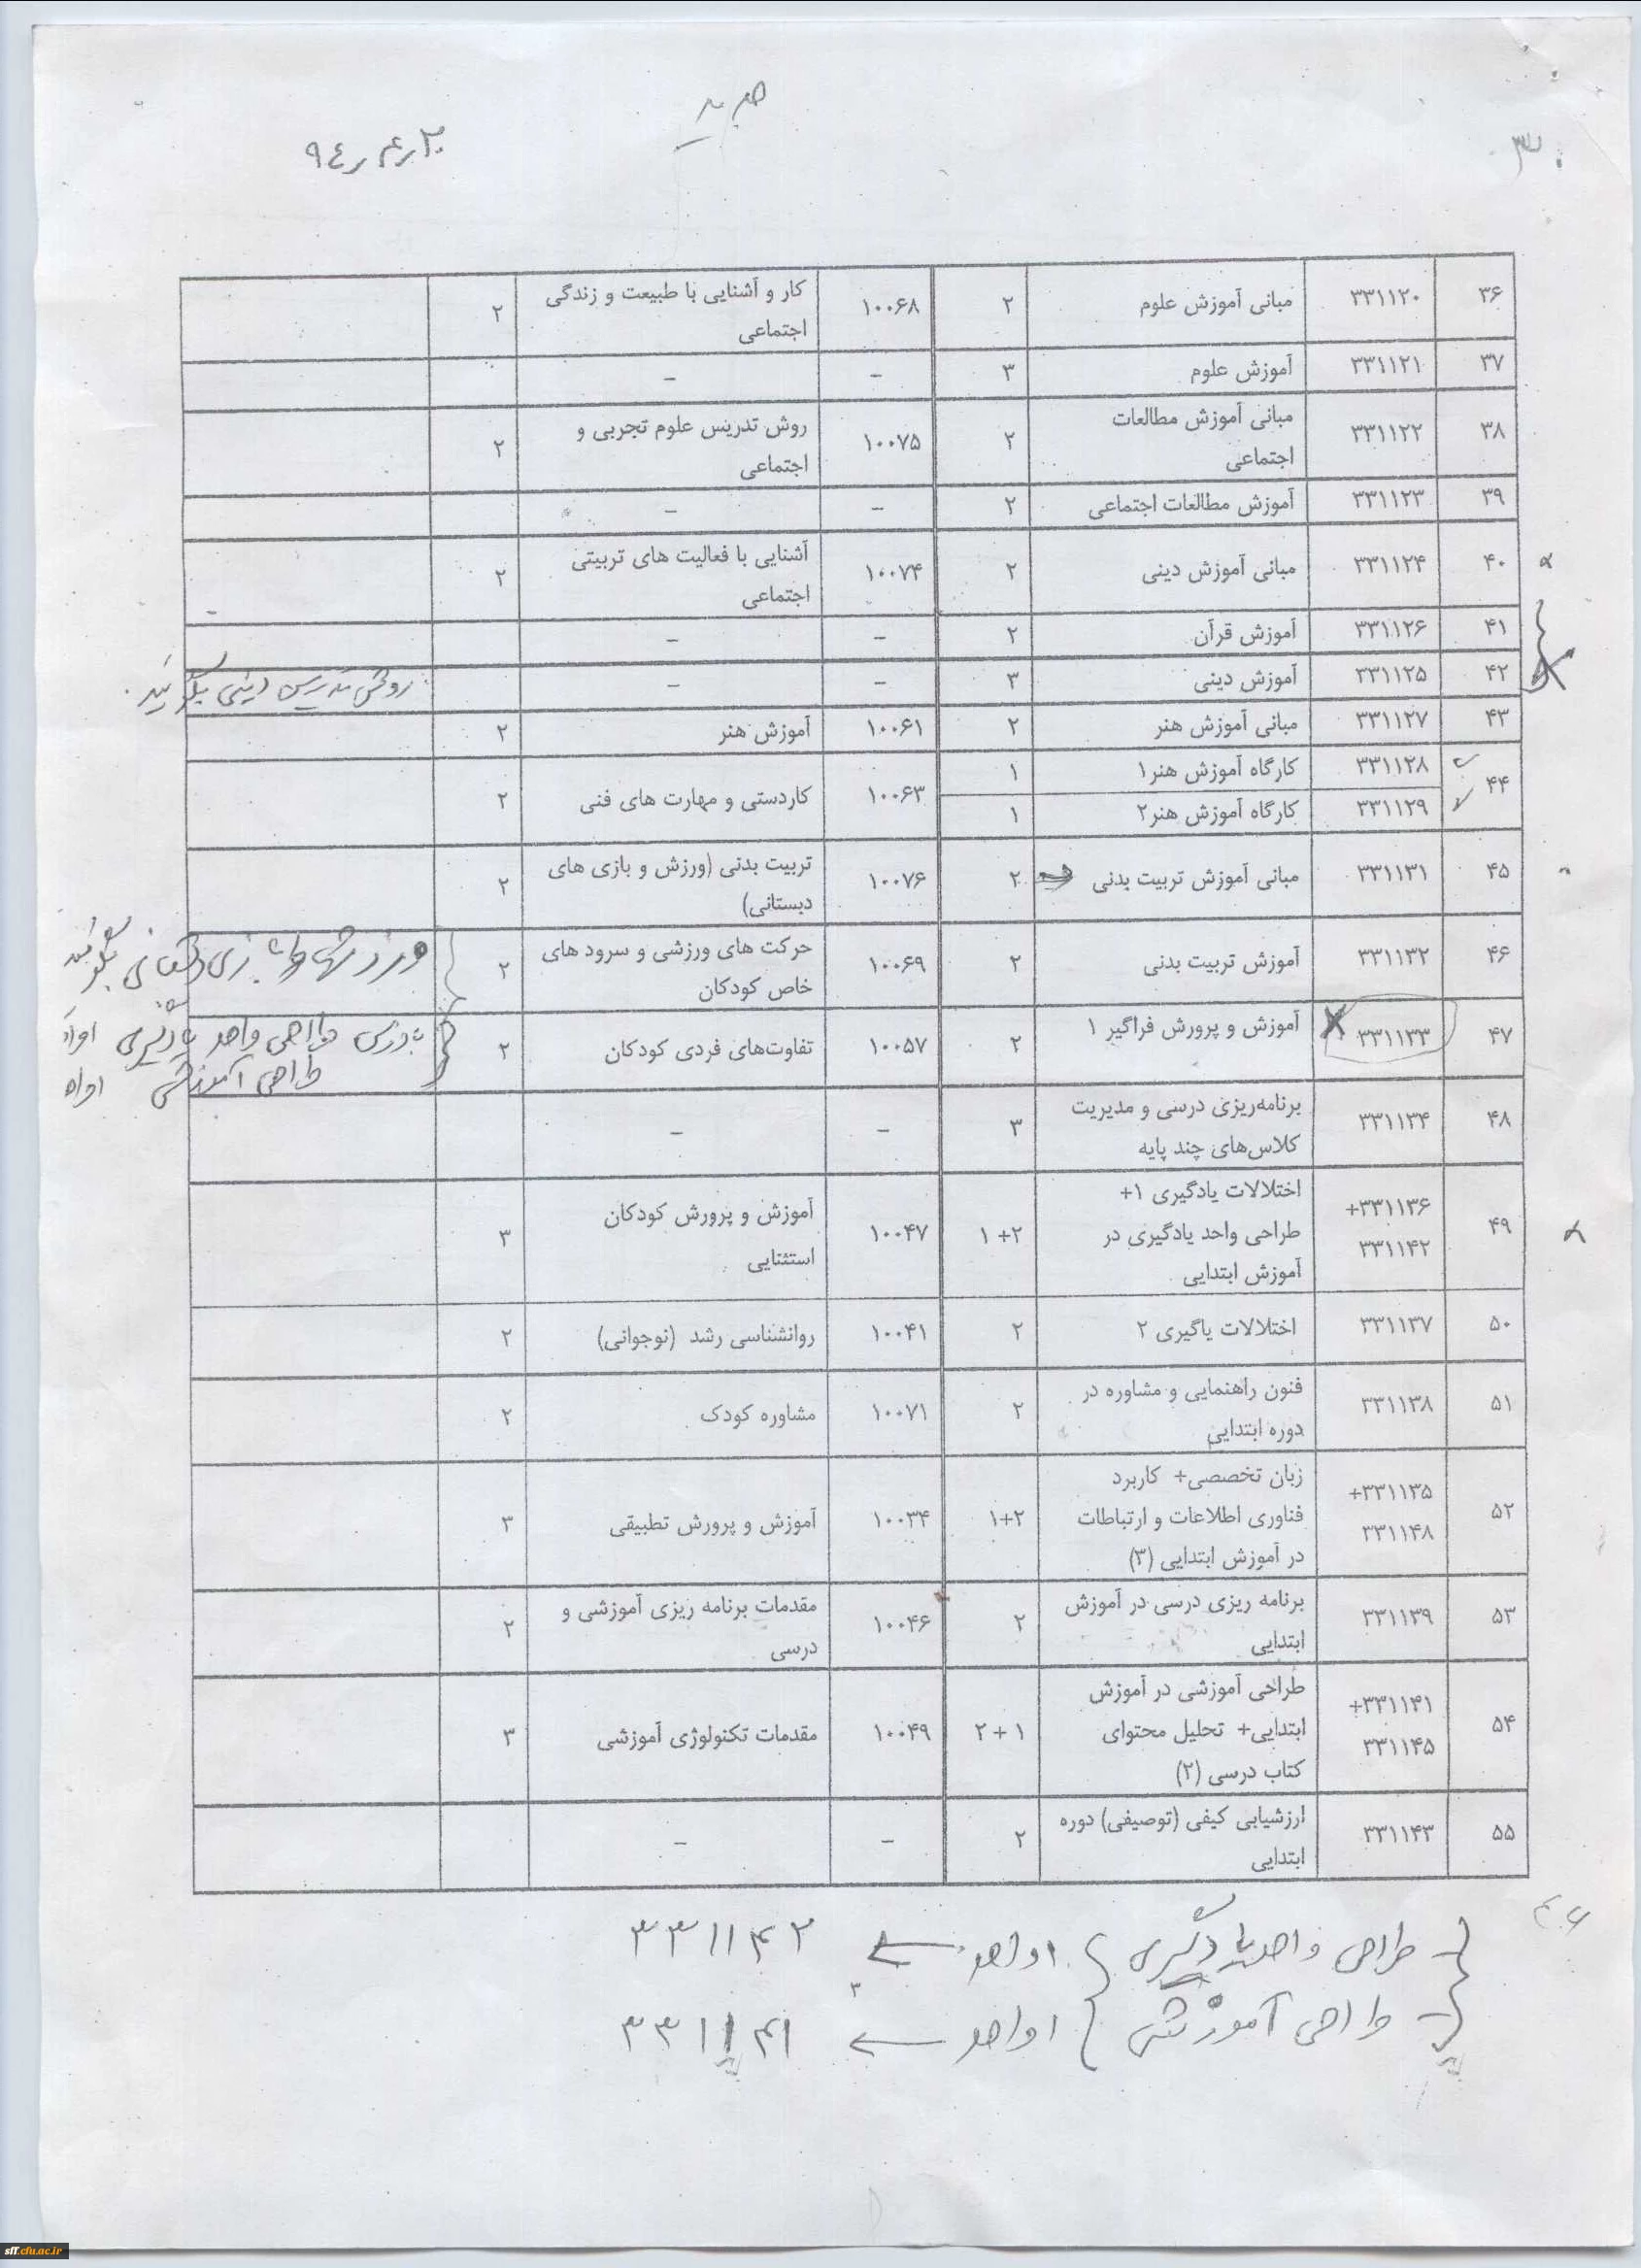 جدید
۹۴٫۴٫۲۰
۳۶ ۳۳۱۱۲۰ مبانی آموزش علوم ۲ ۱۰۰۶۸ کار و آشنایی با طبیعت و زندگی ۲
اجتماعی
۳۷ ۳۳۱۱۲۱ آموزش علوم ۳ – –
۳۸ ۳۳۱۱۲۲ مبانی آموزش مطالعات ۲ ۱۰۰۷۵ روش تدریس علوم تجربی و ۲
اجتماعی اجتماعی
۳۹ ۳۳۱۱۲۳ آموزش مطالعات اجتماعی ۲ – –
۴۰ ۳۳۱۱۲۴ مبانی آموزش دینی ۲ ۱۰۰۷۴ آشنایی با فعالیت های تربیتی ۲
اجتماعی
۴۱ ۳۳۱۱۲۶ آموزش قرآن ۲ – –
۴۲ ۳۳۱۱۲۵ آموزش دینی ۳ – – روش تدریس دینی
۴۳ ۳۳۱۱۲۷ مبانی آموزش هنر ۲ ۱۰۰۶۱ آموزش هنر ۲
۴۴ ۳۳۱۱۲۸ کارگاه آموزش هنر۱ ۱ ۱۰۰۶۳ کاردستی و مهارت های فنی ۲
۳۳۱۱۲۹ کارگاه آموزش هنر۲ ۱
۴۵ ۳۳۱۱۳۱ مبانی آموزش تربیت بدنی ۲ ۱۰۰۷۶ تربیت بدنی (ورزش و بازی های ۲
دبستانی)
۴۶ ۳۳۱۱۳۲ آموزش تربیت بدنی ۲ ۱۰۰۶۹ حرکت های ورزشی و سرود های ۲
خاص کودکان
۴۷ ۳۳۱۱۳۳ آموزش و پرورش فراگیر ۱ ۲ ۱۰۰۵۷ تفاوت‌های فردی کودکان ۲ طراحی واحد یادگیری
طراحی آموزشی
۴۸ ۳۳۱۱۳۴ برنامه‌ریزی درسی و مدیریت ۳ – –
کلاس‌های چند پایه
۴۹ ۳۳۱۱۳۶+ اختلالات یادگیری ۱+ ۲+ ۱ ۱۰۰۴۷ آموزش و پرورش کودکان ۳
۳۳۱۱۴۲ طراحی واحد یادگیری در استثنایی
آموزش ابتدایی
۵۰ ۳۳۱۱۳۷ اختلالات یاگیری ۲ ۲ ۱۰۰۴۱ روانشناسی رشد (نوجوانی) ۲
۵۱ ۳۳۱۱۳۸ فنون راهنمایی و مشاوره در ۲ ۱۰۰۷۱ مشاوره کودک ۲
دوره ابتدایی
۵۲ ۳۳۱۱۳۵+ زبان تخصصی+ کاربرد ۲+۱ ۱۰۰۳۴ آموزش و پرورش تطبیقی ۳
۳۳۱۱۴۸ فناوری اطلاعات و ارتباطات
در آموزش ابتدایی (۳)
۵۳ ۳۳۱۱۳۹ برنامه ریزی درسی در آموزش ۲ ۱۰۰۴۶ مقدمات برنامه ریزی آموزشی و ۲
ابتدایی درسی
۵۴ ۳۳۱۱۴۱+ طراحی آموزشی در آموزش ۱ + ۲ ۱۰۰۴۹ مقدمات تکنولوژی آموزشی ۳
۳۳۱۱۴۵ ابتدایی+ تحلیل محتوای
کتاب درسی (۲)
۵۵ ۳۳۱۱۴۳ ارزشیابی کیفی (توصیفی) دوره ۲ – –
ابتدایی
طراحی واحد یادگیری ۱واحد ← ۳۳۱۱۴۲
طراحی آموزشی ۱واحد ← ۳۳۱۱۴۱
sff.cfu.ac.ir